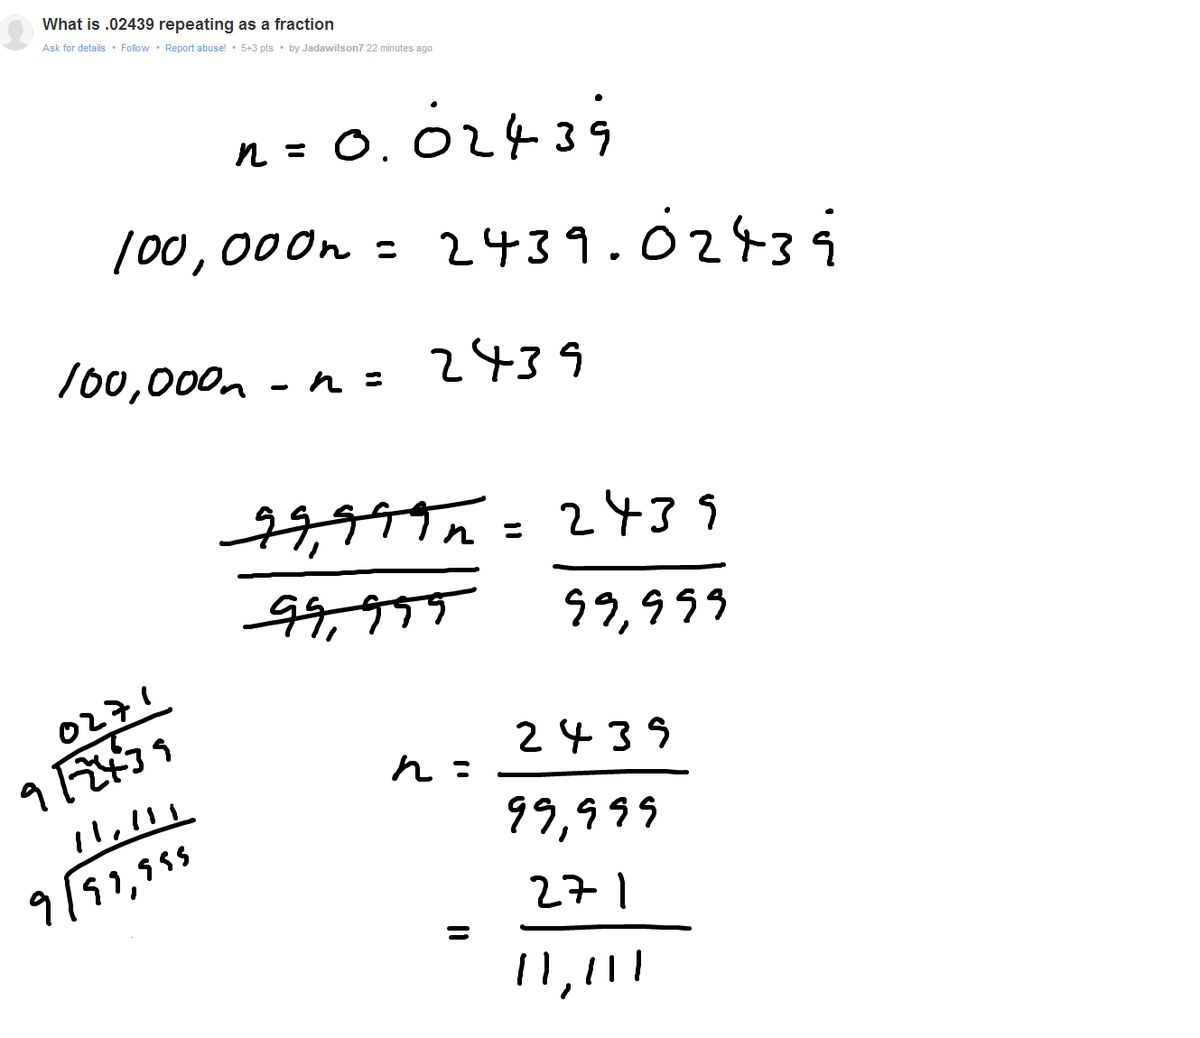 What is .02439 repeating as a fraction
Ask for details • Follow • Report abuse! • 5+3 pts • by Jadawilson7 22 minutes ago
n = 0.0̇2439̇
100,000n = 2439.0̇2439̇
100,000n - n = 2439
99,999n = 2439
99,999 99,999
0271
9 2439
11,111
9 99,999
n = 2439
99,999
= 271
11,111